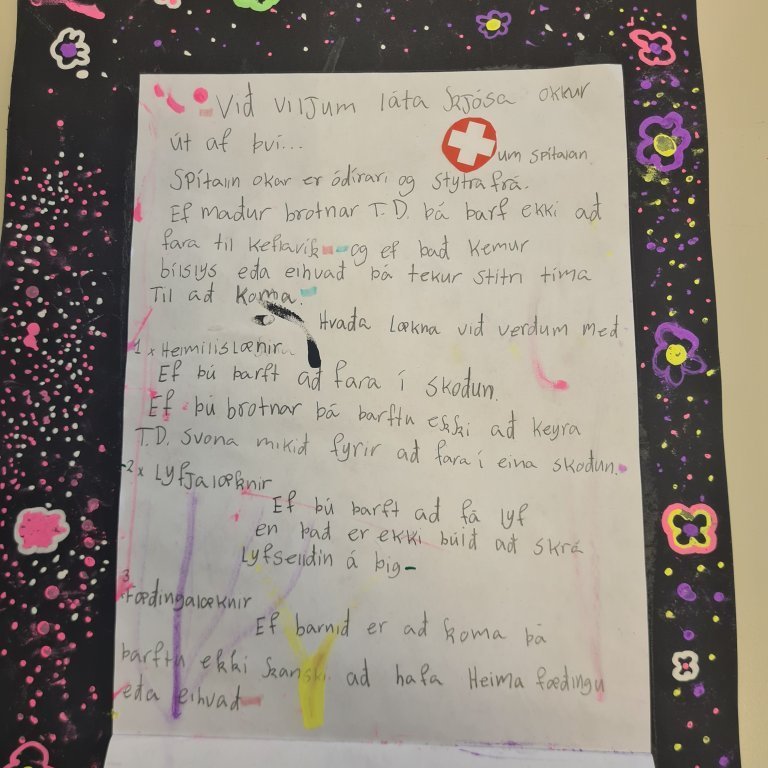 Við viljum láta kjósa okkur
út af því...
um spítalan
Spítalin okar er ódírari og styttra frá.
Ef maður brotnar T.D. þá þarf ekki að
fara til keflavík og ef það kemur
bílslys eða eihvað þá tekur stitri tíma
Til að koma.
Hvaða lækna við verðum með
1 x Heimilislæknira
Ef þú þarft að fara í skoðun.
Ef þú brotnar þá þarftu ekki að keyra
T.D. svona mikið fyrir að fara í eina skoðun.
2 x Lyfjalæknir
Ef þú þarft að fá lyf
en það er ekki búið að skrá
Lyfseiðin á þig-
3
Fæðingalæknir
Ef barnið er að koma þá
þarftu ekki kanski að hafa Heima fæðingu
eða eihvað